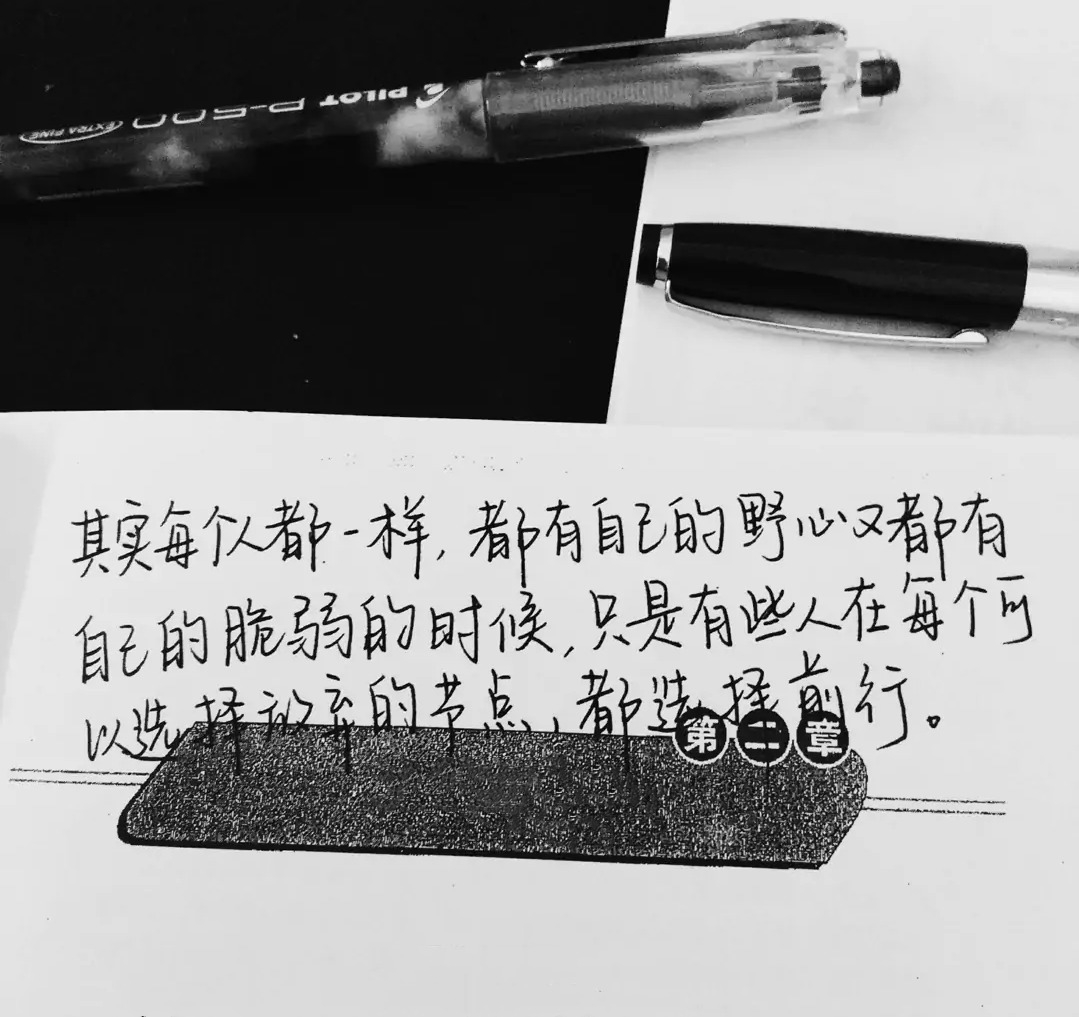 PILOT P-500
EXTRA FINE
其实每个人都一样，都有自己的野心又都有
自己的脆弱的时候，只是有些人在每个可
以选择放弃的节点，都选择前行。
第二章